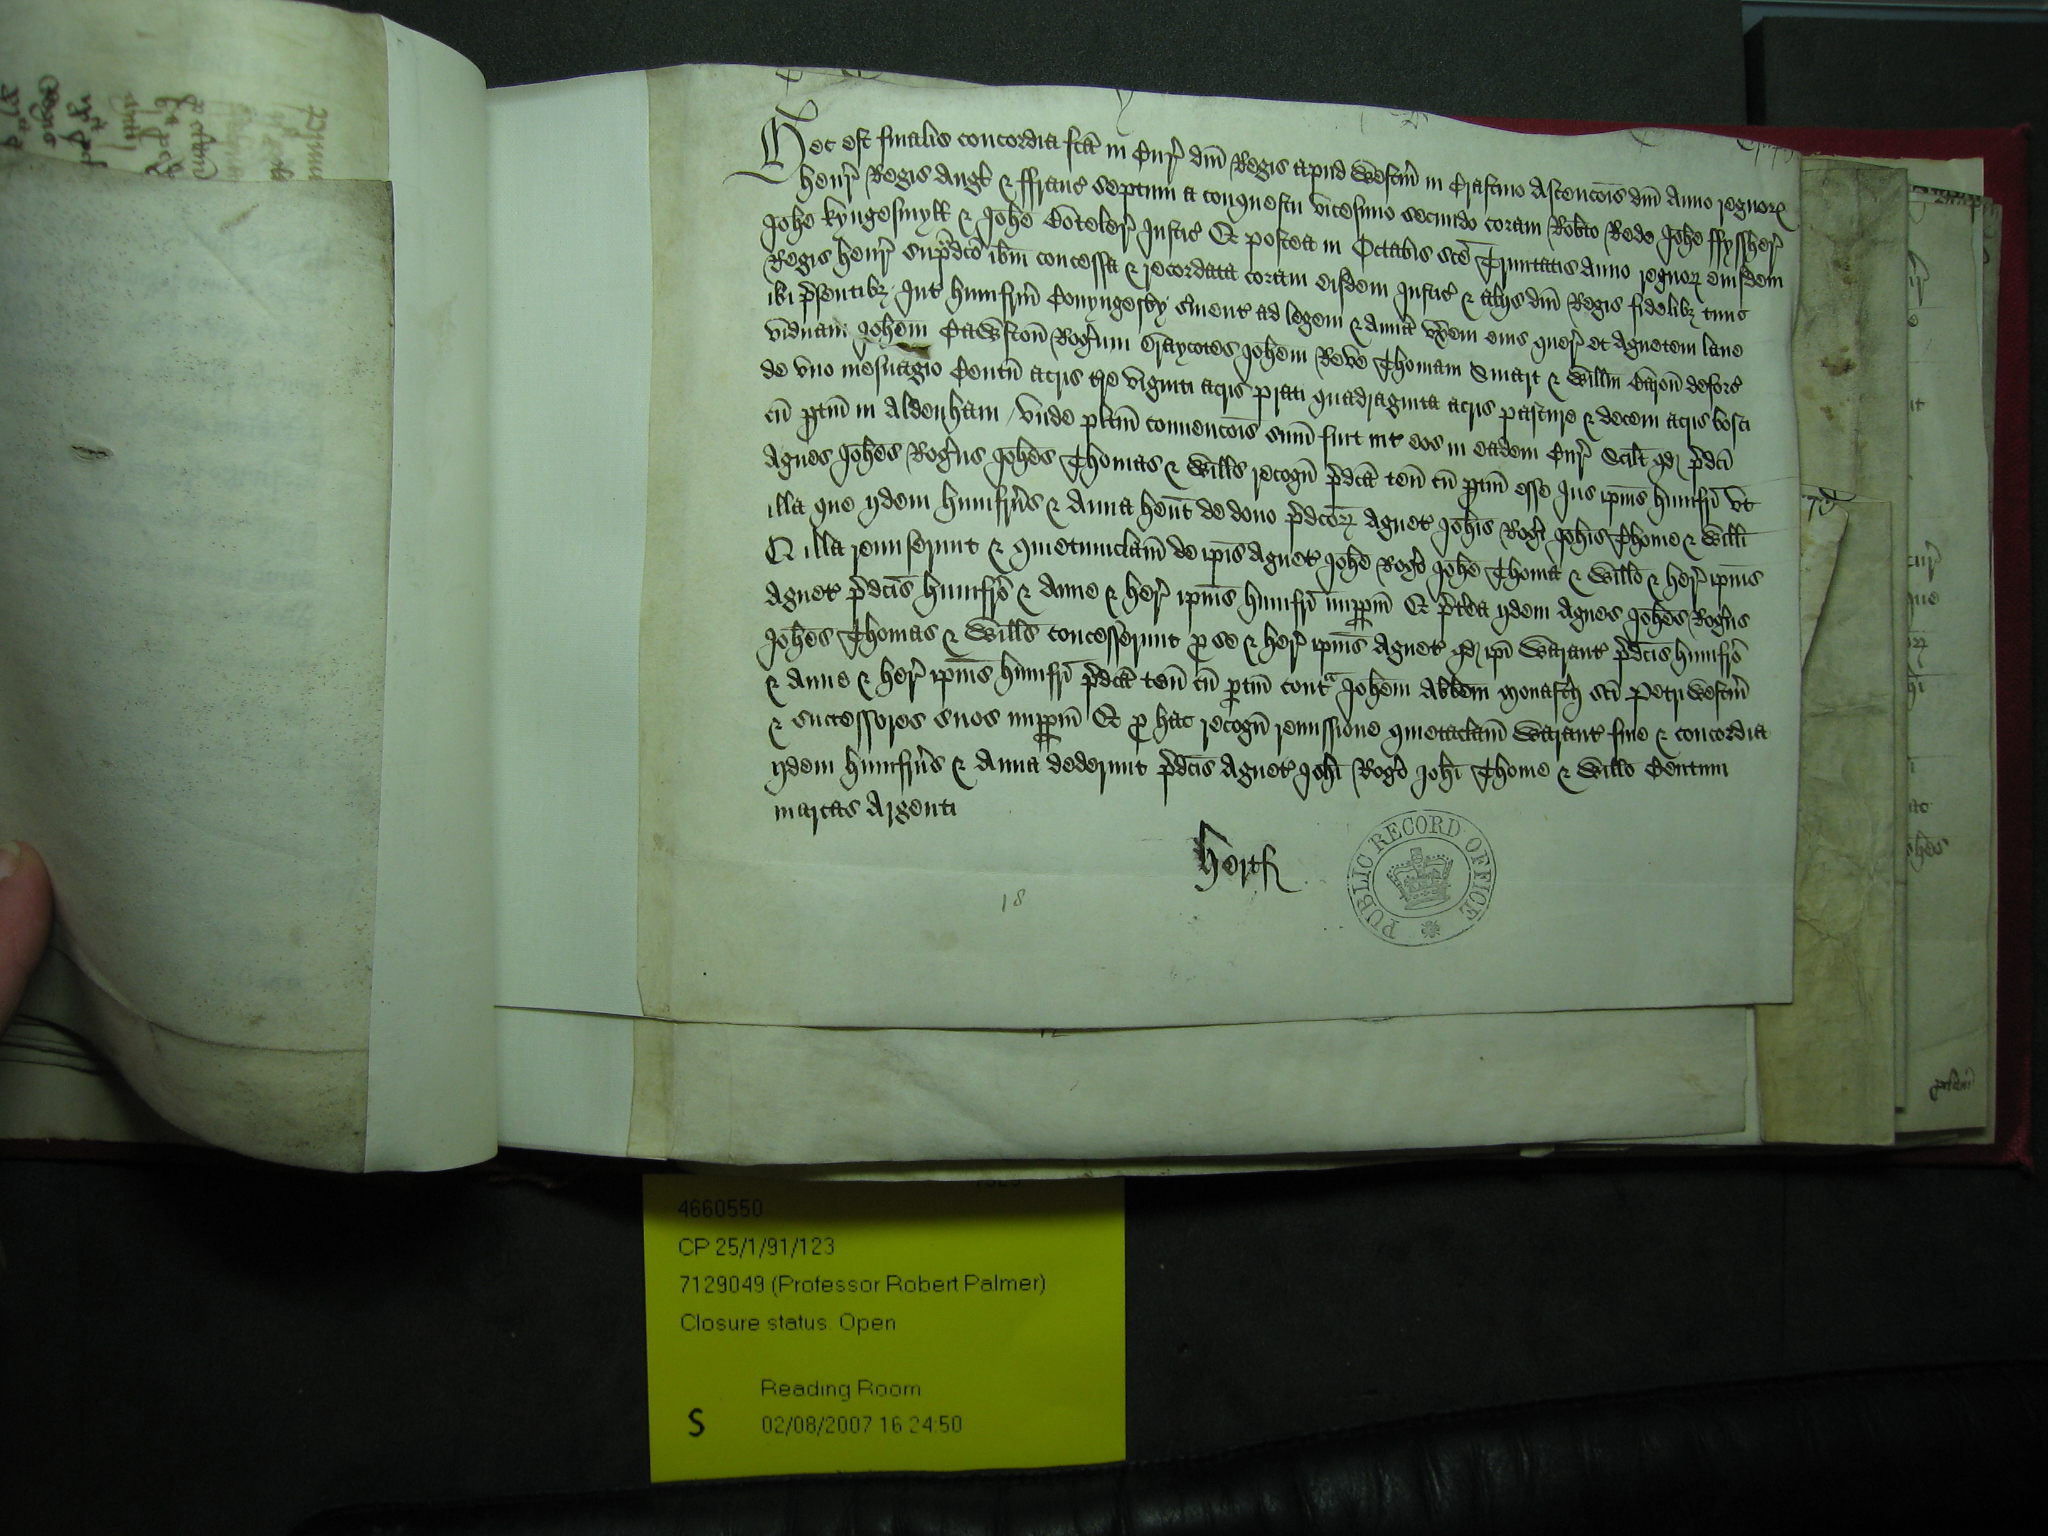 Hec est finalis concordia fc̃a in Cur̃ dñi Regis apud Westm̃ in Crastino Ascenc̃ois dñi Anno regnoꝝ
henr̃ Regis Angł & ffranc̃ septimi a conquestu vicesimo secundo coram Rob̃to Rede Joħe ffyssher̃
Joħe kyngesmyll & Joħe Boteler̃ Justic̃ Et postea in Octabis sc̃e Trinitatis anno regnoꝝ eiusdem
Regis henr̃ sup̃dc̃o ib̃m concessa & recordata coram eisdem Justic̃ & alijs dñi Regis fidelibꝫ tunc
ibi p̃sentibꝫ Int̃ humfrm̃ Conyngesby s̃uient̃ ad legem & Annã vx̃em eius quer̃ et Agnetem lane
viduam Joħem Cawston Rog̃um Joħem Reve Thomam Smart & Willm̃ deforc̃
de vno mesuagio Centũ acris t̃re viginti acris prati quadraginta acris pasture & decem acris bosci
cũ p̱tiñ in Aldenham / vnde pl̃itm̃ conuenc̃ois sum̃ fuit int̃ eos in eadem Cur̃ Scilt̃ qd̃ p̃dc̃i
Agnes Joħes Rog̃us Joħes Thomas & Willus recogñ p̃dc̃a teñ cũ p̱tiñ esse Jus ip̃ius humfri vt
illa que ijdem humfrus & Anna hent̃ de dono p̃dc̃oꝝ Agnet̃ Joħis Rog̃i Joħis Thome & Willi
Et illa remiserunt & quietumclam̃ de ip̃is Agnet̃ Joħe Rog̃o Joħe Thoma & Willo & her̃ ip̃ius
Agnet̃ p̃dc̃is humfro & Anne & her̃ ip̃ius humfri imp̱p̱m̃ Et p̃t̃ea ijdem Agnes Joħes Rog̃us
Joħes Thomas & Willus concesserunt p̱ se & her̃ ip̃ius Agnet̃ qd̃ ip̃i Warant̃ p̃dc̃is humfro
& Anne & her̃ ip̃ius humfri p̃dc̃a teñ cũ p̱tiñ contᵃ Joħem Abb̃em Monast̃ij sc̃i Petri Westm̃
& successores suos imp̱p̱m̃ Et p̱ hac recogñ remissione quietaclam̃ Warant̃ fine & concordia
ijdem humfrus & Anna dederunt p̃dc̃is Agnet̃ Joħi Rog̃o Joħi Thome & Willo Centum
marcas Argenti
hertf
18
PUBLIC RECORD OFFICE
4660550
CP 25/1/91/123
7129049 (Professor Robert Palmer)
Closure status: Open
Reading Room
S 02/08/2007 16:24:50